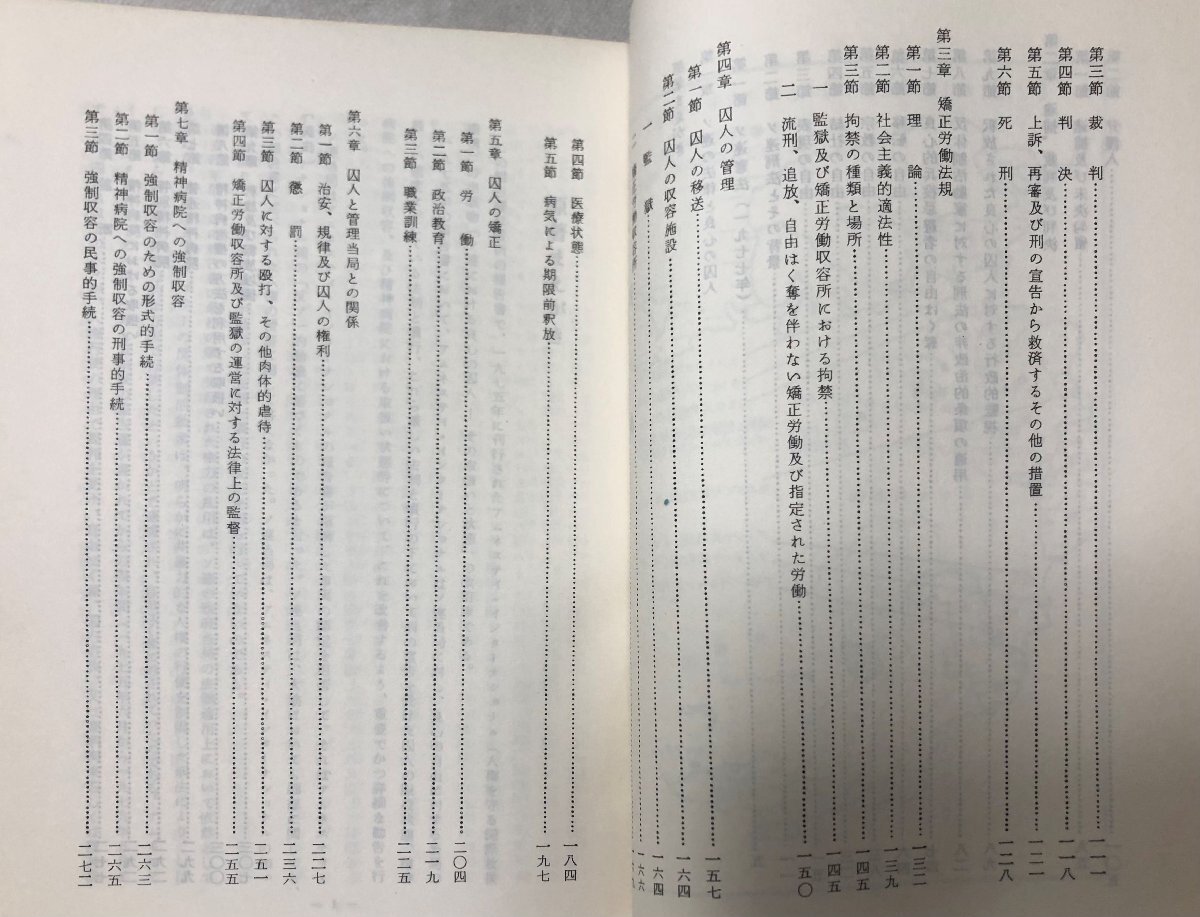 第三節 裁 判……一一一
第四節 判 決……一一八
第五節 上訴、再審及び刑の宣告から救済するその他の措置……一二一
第六節 死 刑……一二八
第三章 矯正労働法規
第一節 理 論……一三二
第二節 社会主義的適法性……一三九
第三節 拘禁の種類と場所……一四五
一 監獄及び矯正労働収容所における拘禁……一四五
二 流刑、追放、自由はく奪を伴わない矯正労働及び指定された労働……一五〇
第四章 囚人の管理
第一節 囚人の移送……一五七
第二節 囚人の収容施設……一六四
一 監 獄……一六四
第四節 医療状態……一八四
第五節 病気による期限前釈放……一九七
第五章 囚人の矯正
第一節 労 働……二〇四
第二節 政治教育……二一九
第三節 職業訓練……二二五
第六章 囚人と管理当局との関係
第一節 治安、規律及び囚人の権利……二二七
第二節 懲 罰……二三六
第三節 囚人に対する殴打、その他肉体的虐待……二五一
第四節 矯正労働収容所及び監獄の運営に対する法律上の監督……二五五
第七章 精神病院への強制収容
第一節 強制収容のための形式的手続……二六三
第二節 精神病院への強制収容の刑事的手続……二六五
第三節 強制収容の民事的手続……二七二